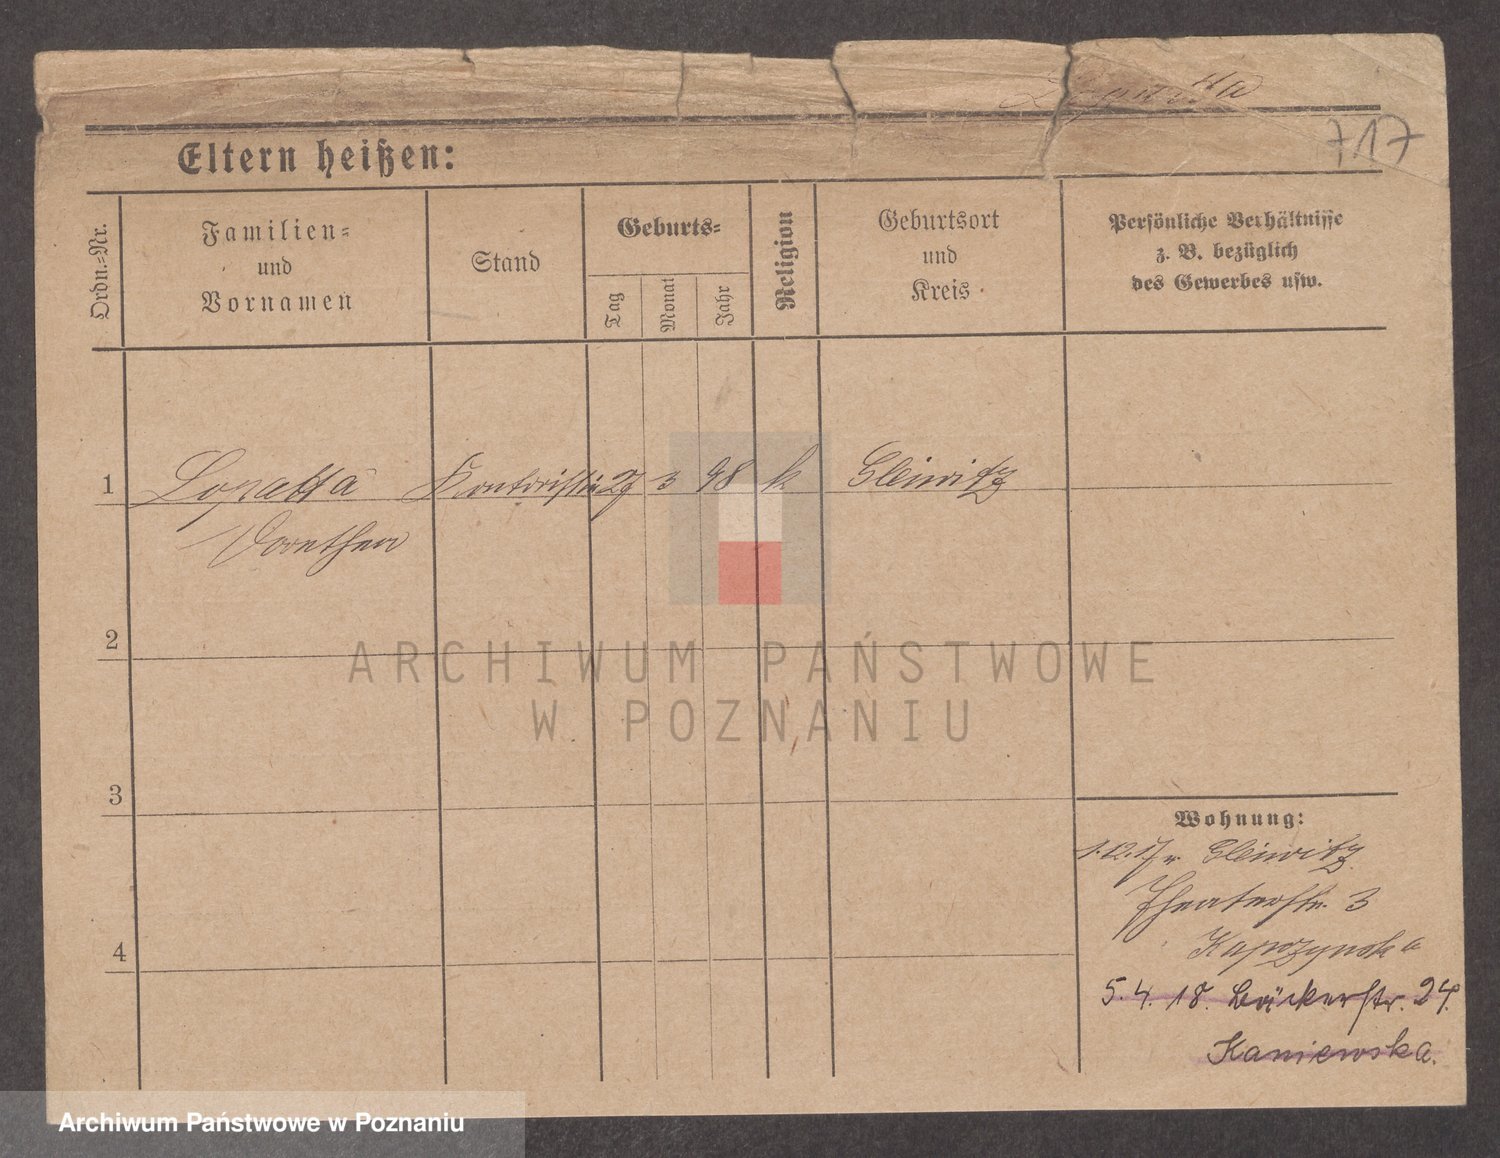 717
Eltern heißen:
Ordn.-Nr.
Familien-
und
Vornamen
Stand
Geburts-
Tag
Monat
Jahr
Religion
Geburtsort
und
Kreis
Persönliche Verhältnisse
z. B. bezüglich
des Gewerbes usw.
1 Lopatta Kontoristin 27 3 98 k Gleiwitz
Dorothea
2
3
4
Wohnung:
1.12.17 v. Gleiwitz
Theaterstr. 3
Kapczynska
5.4.18. Bäckerstr. 24.
Kaniewska.
ARCHIWUM PAŃSTWOWE
W POZNANIU
Archiwum Państwowe w Poznaniu